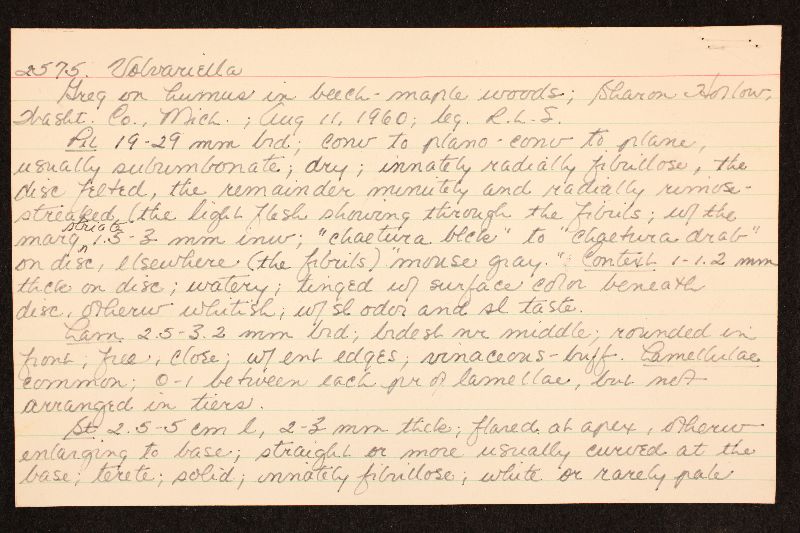 2575. Volvariella
Greg on humus in beech-maple woods; Sharon Hollow,
Washt. Co., Mich.; Aug 11, 1960; leg. R.L.S.
Pil 19-29 mm brd; conv to plano-conv to plane,
usually subumbonate; dry; innately radially fibrillose, the
disc felted, the remainder minutely and radially rimose-
streaked (the light flesh showing through the fibrils; w/ the
marg striate 1.5-3 mm inw; "chaetura blck" to "chaetura drab"
on disc, elsewhere (the fibrils) "mouse gray." Context 1-1.2 mm
thick on disc; watery; tinged w/ surface color beneath
disc, otherw whitish; w/ sl odor and sl taste.
Lam 2.5-3.2 mm brd; brdest nr middle; rounded in
front; free, close; w/ ent edges; vinaceous-buff. Lamellulae
common; 0-1 between each pr of lamellae, but not
arranged in tiers.
St 2.5-5 cm l, 2-3 mm thick; flared at apex, otherw
enlarging to base; straight or more usually curved at the
base; terete; solid; innately fibrillose; white or rarely pale